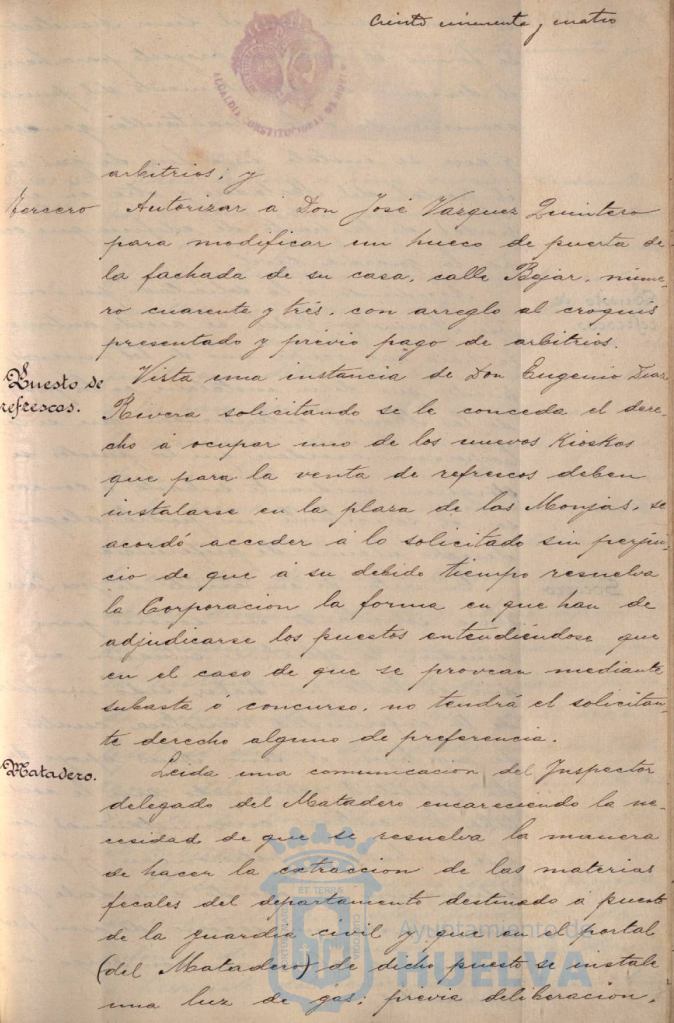 Ciento cincuenta y cuatro
ALCALDIA CONSTITUCIONAL DE
arbitrios; y
Tercero Autorizar á Don José Vazquez Quintero
para modificar un hueco de puerta de
la fachada de su casa, calle Bejar, núme-
ro cuarenta y tres, con arreglo al croquis
presentado y prévio pago de arbitrios.
Puesto de refrescos. Vista una instancia de Don Eugenio Diaz
Rivera solicitando se le conceda el dere-
cho á ocupar uno de los nuevos Kioskos
que para la venta de refrescos deben
instalarse en la plaza de las Monjas, se
acordó acceder á lo solicitado sin perjui-
cio de que á su debido tiempo resuelva
la Corporacion la forma en que han de
adjudicarse los puestos entendiéndose que
en el caso de que se provean mediante
subasta ó concurso, no tendrá el solicitan-
te derecho alguno de preferencia.
Matadero. Leida una comunicacion del Inspector
delegado del Matadero encareciendo la ne-
cesidad de que se resuelva la manera
de hacer la extraccion de las materias
fecales del departamento destinado á puesto
de la guardia civil y que en el portal
(del Matadero) de dicho puesto se instale
una luz de gás; prévia deliberacion,
Ayuntamiento de
HUELVA